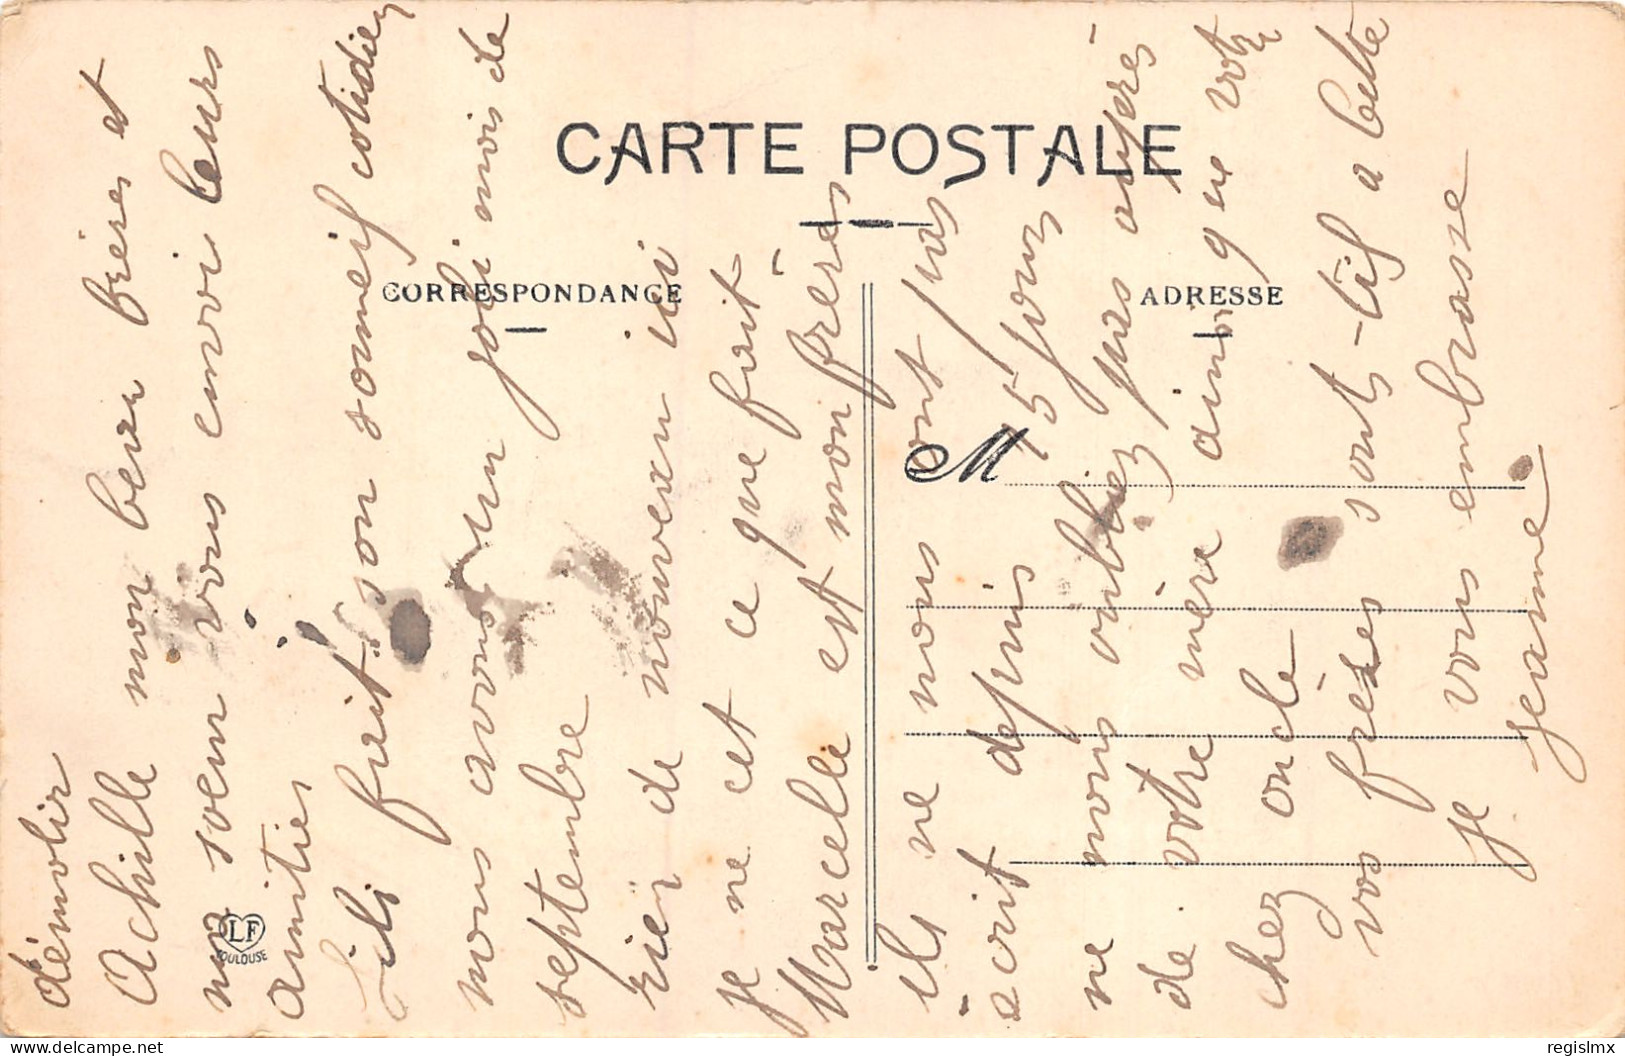 CARTE POSTALE
CORRESPONDANCE
ADRESSE
M
LF
TOULOUSE
démolir
Achille mon beau frères et
ma soeur vous envoi leurs
amitiés
ils fait son sommeil cotidien
nous avons un joli mois de
septembre
rien de nouveau ici
je ne cet ce que fait
Marcelle et mon frères
ils ne nous ont pas
écrit depuis 15 jours
ne nous oubliez pas auprès
de votre mère ainsi que votre
chez oncle
vos frères sont-til a Cette
je vous embrasse
Jeanne
regislmx